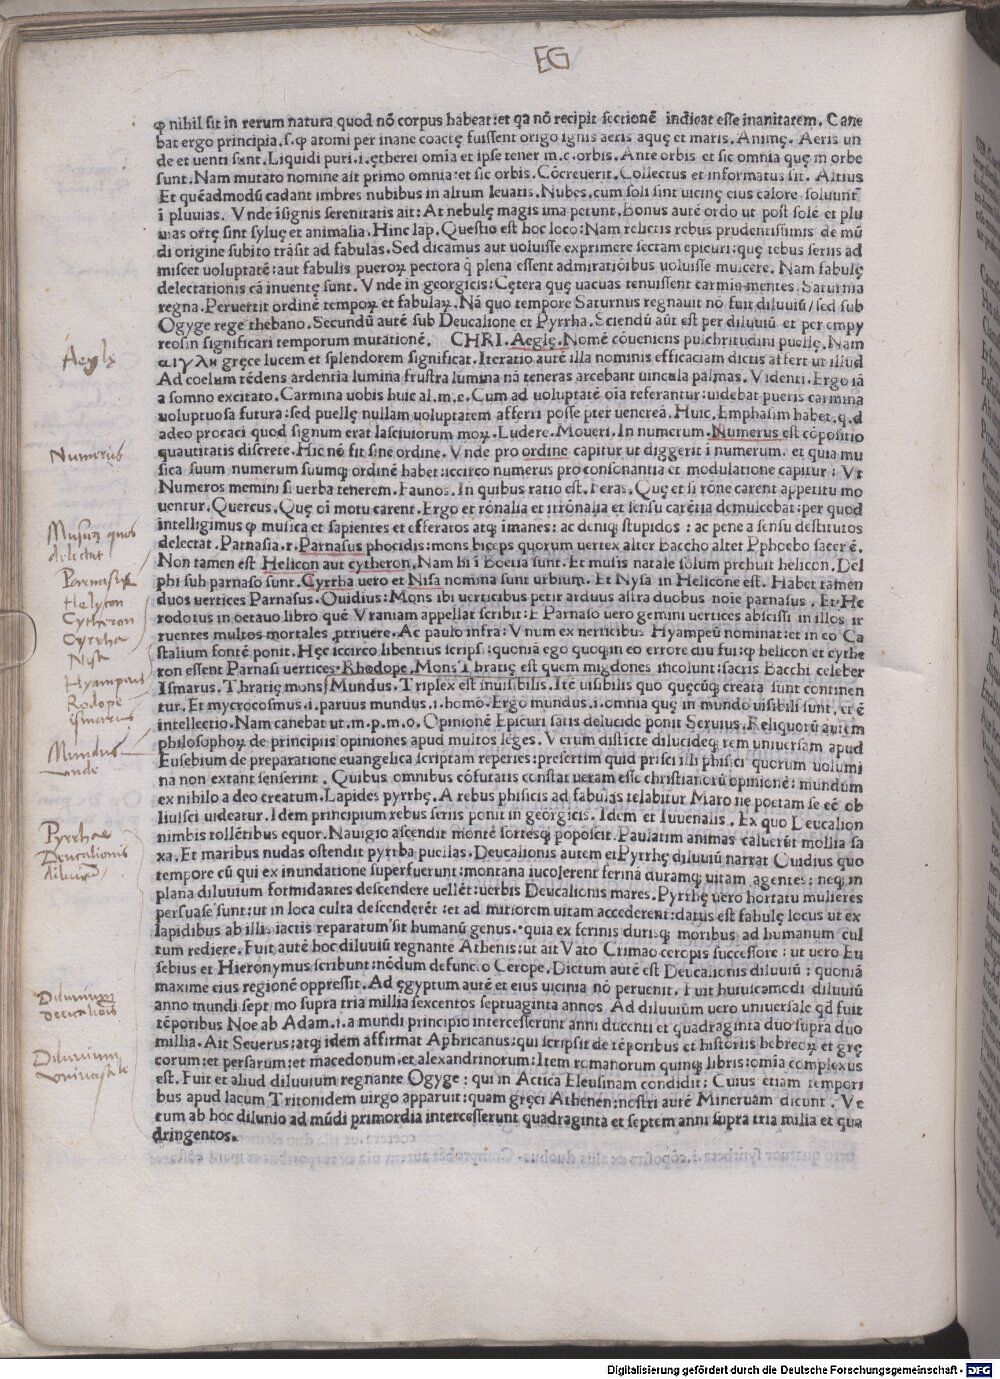 EG
ꝙ nihil sit in rerum natura quod nō corpus habeat: et qa nō recipit sectionē indicat esse inanitatem. Cane
bat ergo principia. s. ꝙ atomi per inane coactę fuissent origo ignis aeris aquę et maris. Animę. Aeris un
de et uenti sunt. Liquidi puri. i. ętherei omia et ipse tener m. c. orbis. Ante orbis et sic omnia quę in orbe
sunt. Nam mutato nomine ait primo omnia: et sic orbis. Cōcreuerit. Collectus et informatus sit. Altius
Et quēadmodū cadant imbres nubibus in altum leuatis. Nubes. cum soli sint uicinę eius calore soluunt̄
ī pluuias. Vnde īsignis serenitatis ait: At nebulę magis ima petunt. Bonus autē ordo ut post solē et plu
uias ortę sint syluę et animalia. Hinc lap. Questio est hoc loco: Nam relictis rebus prudentissimis de mū
di origine subito trāsit ad fabulas. Sed dicamus aut uoluisse exprimere sectam epicuri: quę rebus seriis ad
miscet uoluptatē: aut fabulis pueroꝝ pectora q̄ plena essent admiratiōibus uoluisse mulcere. Nam fabulę
delectationis cā inuentę sunt. Vnde in georgicis: Cętera quę uacuas tenuissent carmina mentes. Saturnia
regna. Peruertit ordinē tempoꝝ et fabulaꝝ. Nā quo tempore Saturnus regnauit nō fuit diluuiū / sed sub
Ogyge rege thebano. Secundū autē sub Deucalione et Pyrrha. Sciendū aūt est per diluuiū et per empy
reosin significari temporum mutationē. CHRI. Aegle. Nomē cōueniens pulchritudini puellę. Nam
αιγλη gręce lucem et splendorem significat. Iteratio autē illa nominis efficaciam dictis affert ut illud
Ad coelum tēdens ardentia lumina frustra lumina nā teneras arcebant uincula palmas. Videnti. Ergo iā
a somno excitato. Carmina uobis huic al. m. e. Cum ad uoluptatē oīa referantur: uidebat pueris carmina
uoluptuosa futura: sed puellę nullam uoluptatem afferri posse pter uenereā. Huic. Emphasim habet. q. d
adeo procaci quod signum erat lasciuiorum moꝝ. Ludere. Moueri. In numerum. Numerus est cōpositio
quautitatis discrete. Hic nō fit sine ordine. Vnde pro ordine capitur ut diggerit i numerum. et quia mu
sica suum numerum suumqꝫ ordinē habet: iccirco numerus pro consonantia et modulatione capitur: Vt
Numeros memini si uerba tenerem. Faunos. In quibus ratio est. Feras. Quę et si rōne carent appetitu mo
uentur. Quercus. Quę oī motu carent. Ergo et rōnalia et irrōnalia et sensu carētia demulcebat: per quod
intelligimus ꝙ musica et sapientes et efferatos atqꝫ imanes: ac deniqꝫ stupidos: ac pene a sensu destitutos
delectat. Parnasia. r. Parnasus phocidis: mons biceps quorum uertex alter Baccho alter Pphoebo sacer ē.
Non tamen est Helicon aut cytheron. Nam hi i Boetia sunt. Et musis natale solum prebuit helicon. Del
phi sub parnaso sunt. Cyrrha uero et Nisa nomina sunt urbium. Et Nysa in Helicone est. Habet tamen
duos uertices Parnasus. Ouidius: Mons ibi uerticibus petit arduus astra duobus noīe parnasus. Et He
rodotus in octauo libro quē Vraniam appellat scribit: E Parnaso uero gemini uertices abscissi in illos ir
ruentes multos mortales ptriuere. Ac paulo infra: Vnum ex uerticibus Hyampeū nominat: et in eo Ca
stalium fontē ponit. Hęc iccirco libentius scripsi: quoniā ego quoqꝫ in eo errore diu fui: ꝙ helicon et cythe
ron essent Parnasi uertices. Rhodope. Mons Thratię est quem migdones incolunt: sacris Bacchi celeber
Ismarus. Thratię mons. Mundus. Triplex est inuisibilis. Itē uisibilis quo quęcūqꝫ creata sunt continen
tur. Et mycrocosmus. i. paruus mundus. i. homo. Ergo mundus. i. omnia quę in mundo uisibili sunt. et ē
intellectio. Nam canebat ut. m. p. m. o. Opinionē Epicuri satis delucide ponit Seruius. Reliquorū autem
philosophoꝝ de principiis opiniones apud multos leges. Verum distīcte dilucideqꝫ rem uniuersam apud
Eusebium de preparatione euangelica scriptam reperies: presertim quid prisci illi phisici quorum uolumi
na non extant senserint. Quibus omnibus cōfutatis constat ueram esse christianorū opinionē: mundum
ex nihilo a deo creatum. Lapides pyrrhę. A rebus phisicis ad fabulas relabitur Maro ne poetam se eē ob
liuisci uideatur. Idem principium rebus seriis ponit in georgicis. Idem et Iuuenalis. Ex quo Deucalion
nimbis tollētibus equor. Nauigio ascendit montē sortesqꝫ poposcit. Paulatim animas caluerūt mollia sa
xa. Et maribus nudas ostendit pyrrba puellas. Deucalionis autem et Pyrrhę diluuiū narrat Ouidius quo
tempore cū qui ex inundatione superfuerunt: montana iucolerent ferina duramqꝫ uitam agentes: neqꝫ in
plana diluuium formidantes descendere uellēt: uerbis Deucalionis mares. Pyrrhę uero hortatu mulieres
persuase sunt: ut in loca culta descenderēt: et ad mitiorem uitam accederent: datus est fabulę locus ut ex
lapidibus ab illis iactis reparatum sit humanū genus. quia ex ferinis durisqꝫ moribus ad humanum cul
tum rediere. Fuit autē hoc diluuiū regnante Athenis: ut ait Vato Crimao ceropis successore: ut uero Eu
sebius et Hieronymus scribunt: nōdum defuncto Cerope. Dictum autē est Deucalionis diluuiū: quoniā
maxime eius regionē oppressit. Ad ęgyptum autē et eius uicinia nō peruenit. Fuit huiuscemodi diluuiū
anno mundi septimo supra tria millia sexcentos septuaginta annos. Ad diluuium uero uniuersale qd fuit
tēporibus Noe ab Adam. i. a mundi principio intercesserunt anni ducenti et quadraginta duo supra duo
millia. Ait Seuerus: atqꝫ idem affirmat Aphricanus: qui scripsit de tēporibus et historiis hebreoꝝ et grę
corum: et persarum: et macedonum. et alexandrinorum: Item romanorum quinqꝫ libris: omia complexus
est. Fuit et aliud diluuium regnante Ogyge: qui in Actica Eleusinam condidit: Cuius etiam tempori
bus apud lacum Tritonidem uirgo apparuit: quam gręci Athenen: nostri autē Mineruam dicunt. Ve
rum ab hoc diluuio ad mūdi primordia intercesserunt quadraginta et septem anni supra tria milia et qua
dringentos.
Aeglę
Numerus
Musica quos
delectat
Parnasus
Helycon
Cytheron
Cyrrhae
Nisa
Hyampeus
Rodope
ismarus
Mundus
unde
Pyrrhae
Deucalionis
diluuiū
Diluuium
deucalionis
Diluuium
uniuersale
Digitalisierung gefördert durch die Deutsche Forschungsgemeinschaft - DFG